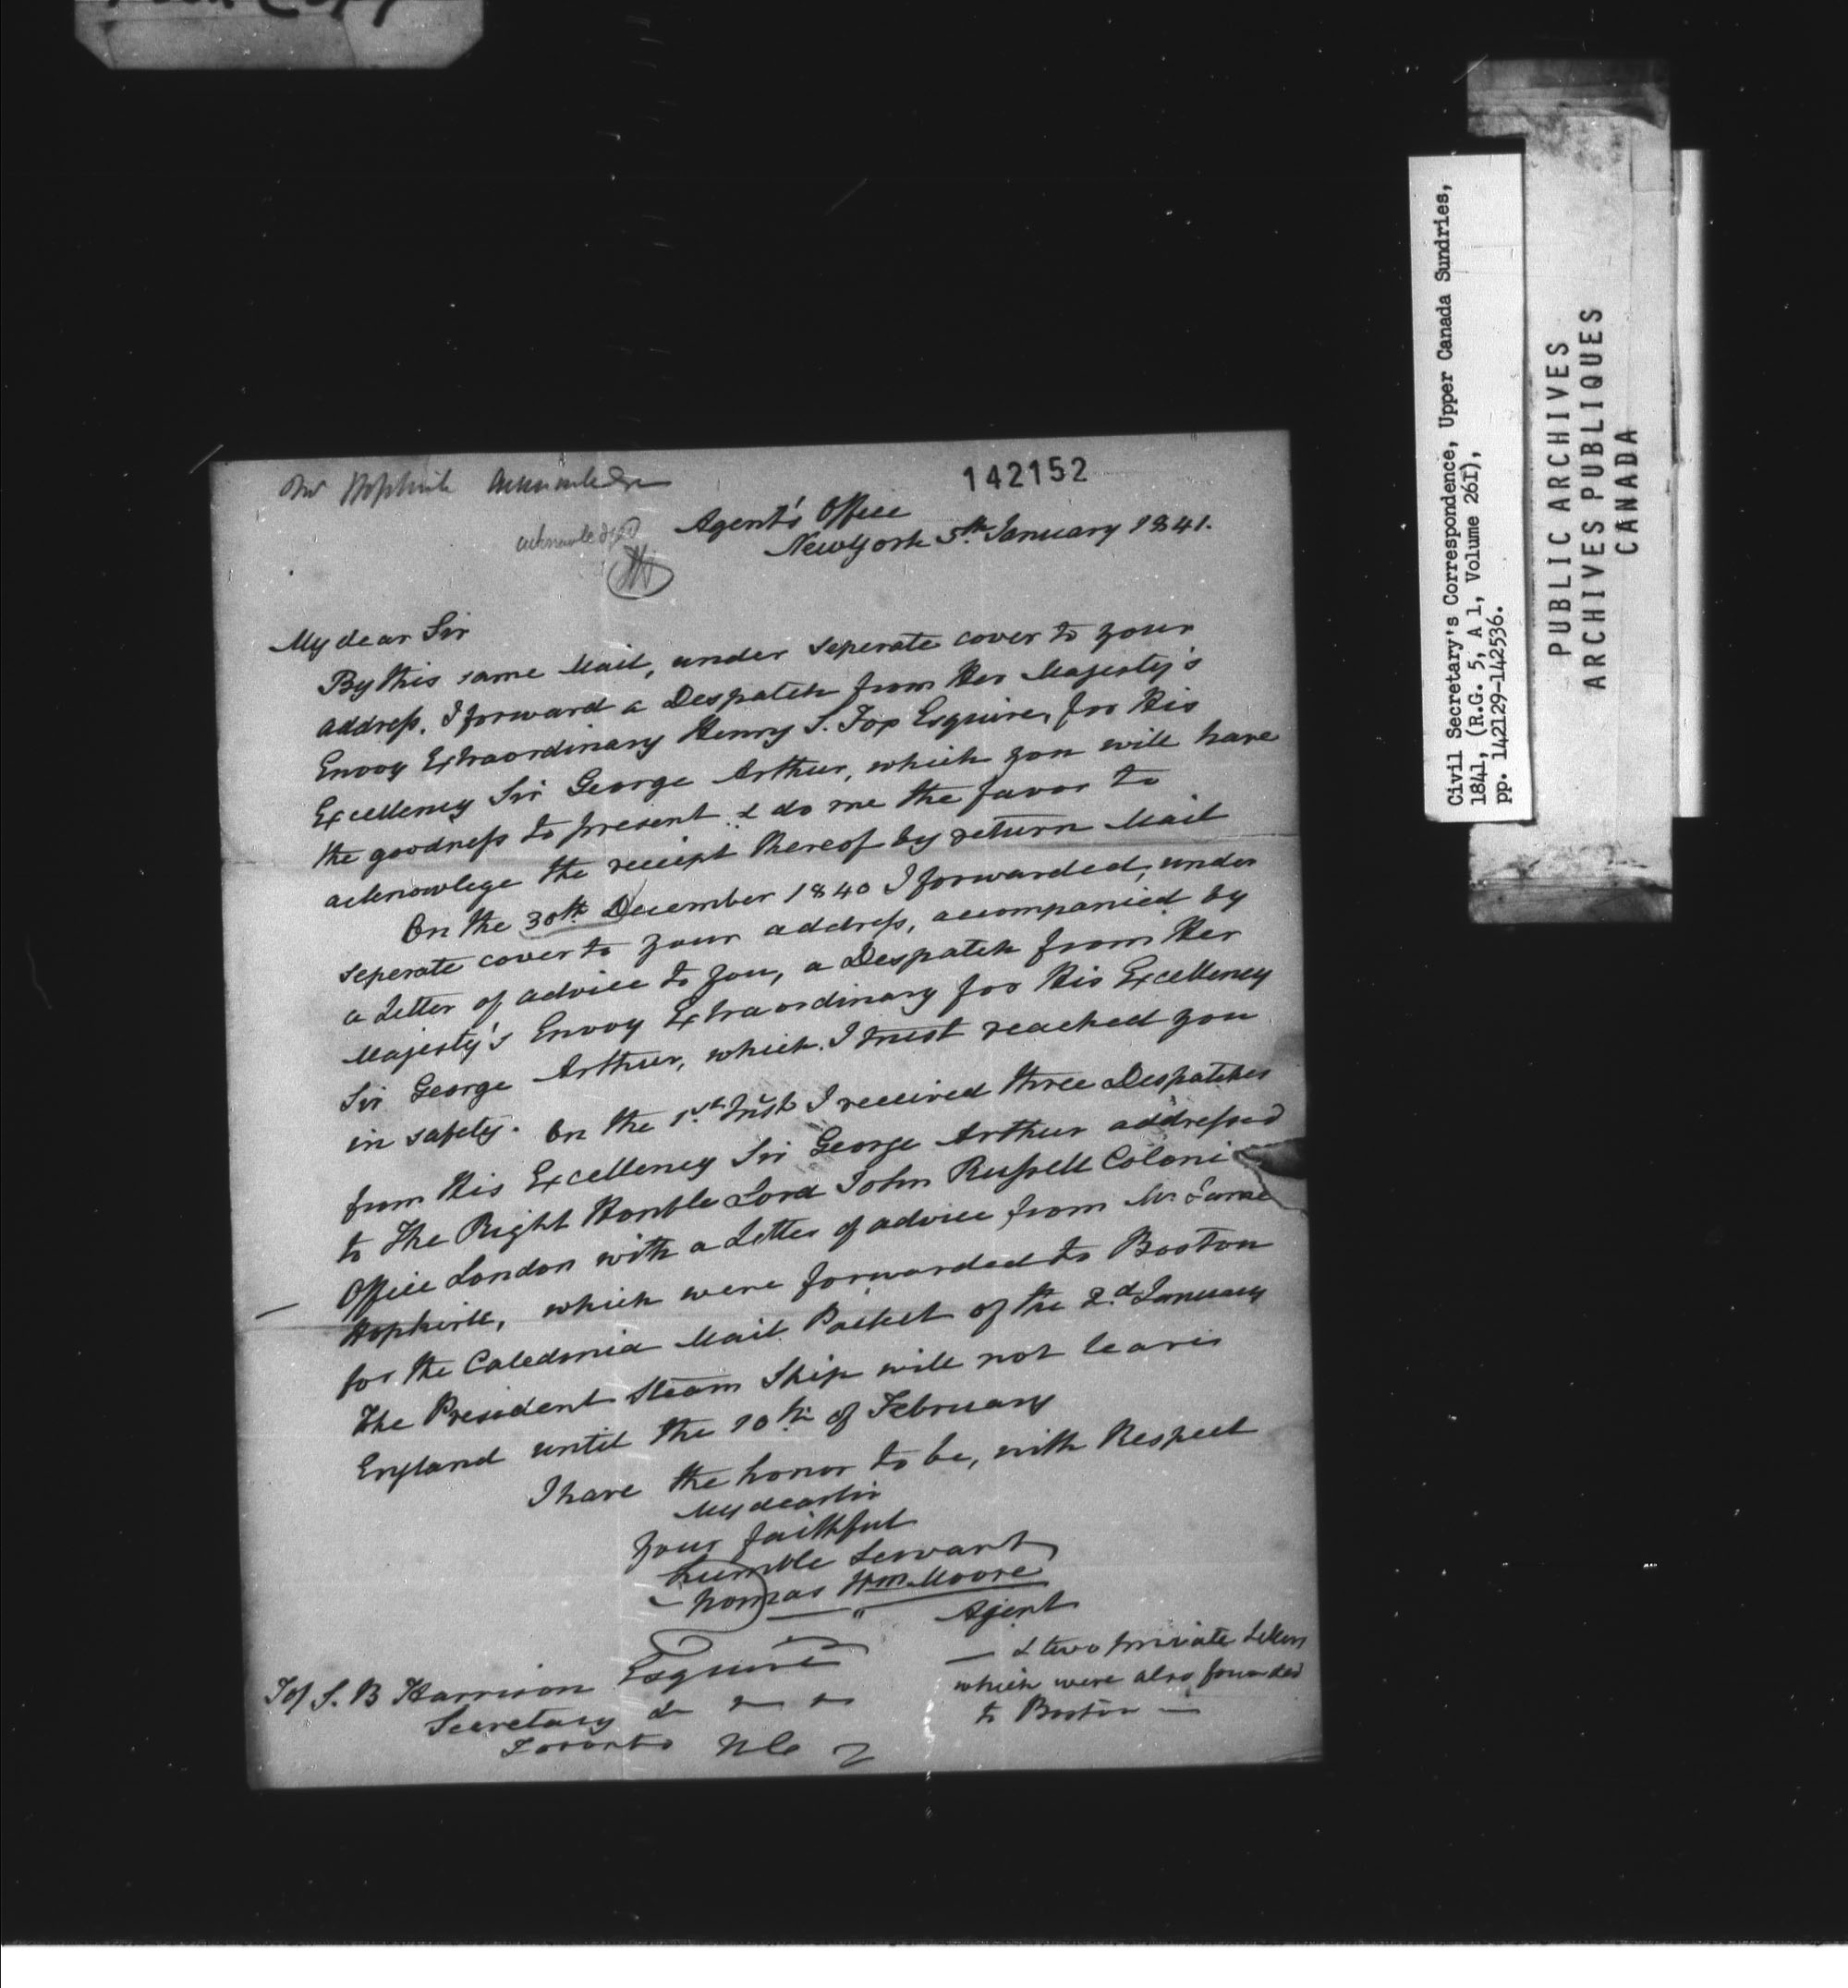 Mr Hopkirk Acknowledge
142152
acknowledged
Agent's Office
New York 5th January 1841.
My dear Sir
By this same Mail, under seperate cover to your
address. I forward a Despatch from Her Majesty's
Envoy Extraordinary Henry S. Fox Esquire, for His
Excellency Sir George Arthur, which you will have
the goodness to present & do me the favor to
acknowlege the receipt thereof by return Mail
On the 30th December 1840 I forwarded, under
seperate cover to your address, accompanied by
a Letter of advice to you, a Despatch from Her
Majesty's Envoy Extraordinary for His Excellency
Sir George Arthur, which I trust reached you
in safety. On the 1st Inst I received three Despatches
from His Excellency Sir George Arthur addressed
to The Right Honble Lord John Russell Coloni
Office London with a Letter of advice from Mr Jame
Hopkirk, which were forwarded to Boston
for the Caledonia Mail Packet of the 2d January
The President Steam Ship will not leave
England until the 10th of February
I have the honor to be, with Respect
My dear Sir
Your faithful
humble Servant
Thomas Wm Moore
Agent
— & two private Letters
which were also forwarded
to Boston —
To/ S. B Harrison Esquire
Secretary &c
Toronto U C
Civil Secretary's Correspondence, Upper Canada Sundries,
1841, (R.G. 5, A 1, Volume 261),
pp. 142129-142536.
PUBLIC ARCHIVES
ARCHIVES PUBLIQUES
CANADA